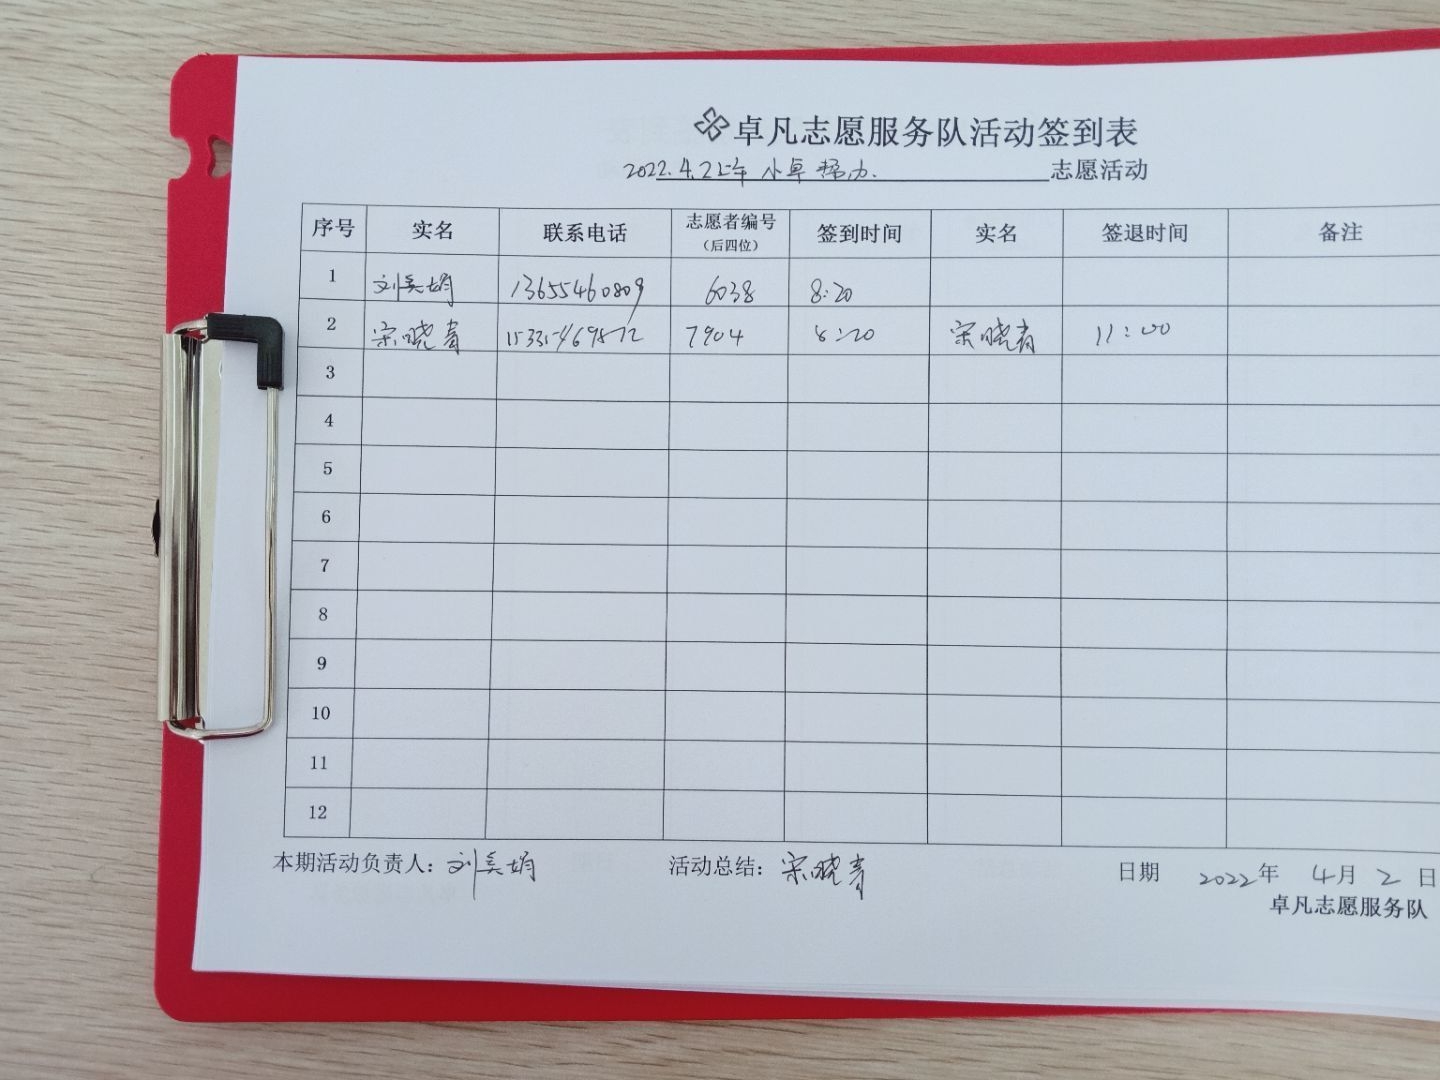 卓凡志愿服务队活动签到表
2022.4.2上午 小卓帮办. 志愿活动
序号 实名 联系电话 志愿者编号（后四位） 签到时间 实名 签退时间 备注
1 刘美娟 13655460809 6038 8:20
2 宋晓青 15335469572 7904 8:20 宋晓青 11:00
3
4
5
6
7
8
9
10
11
12
本期活动负责人：刘美娟 活动总结：宋晓青 日期 2022年 4月 2日
卓凡志愿服务队